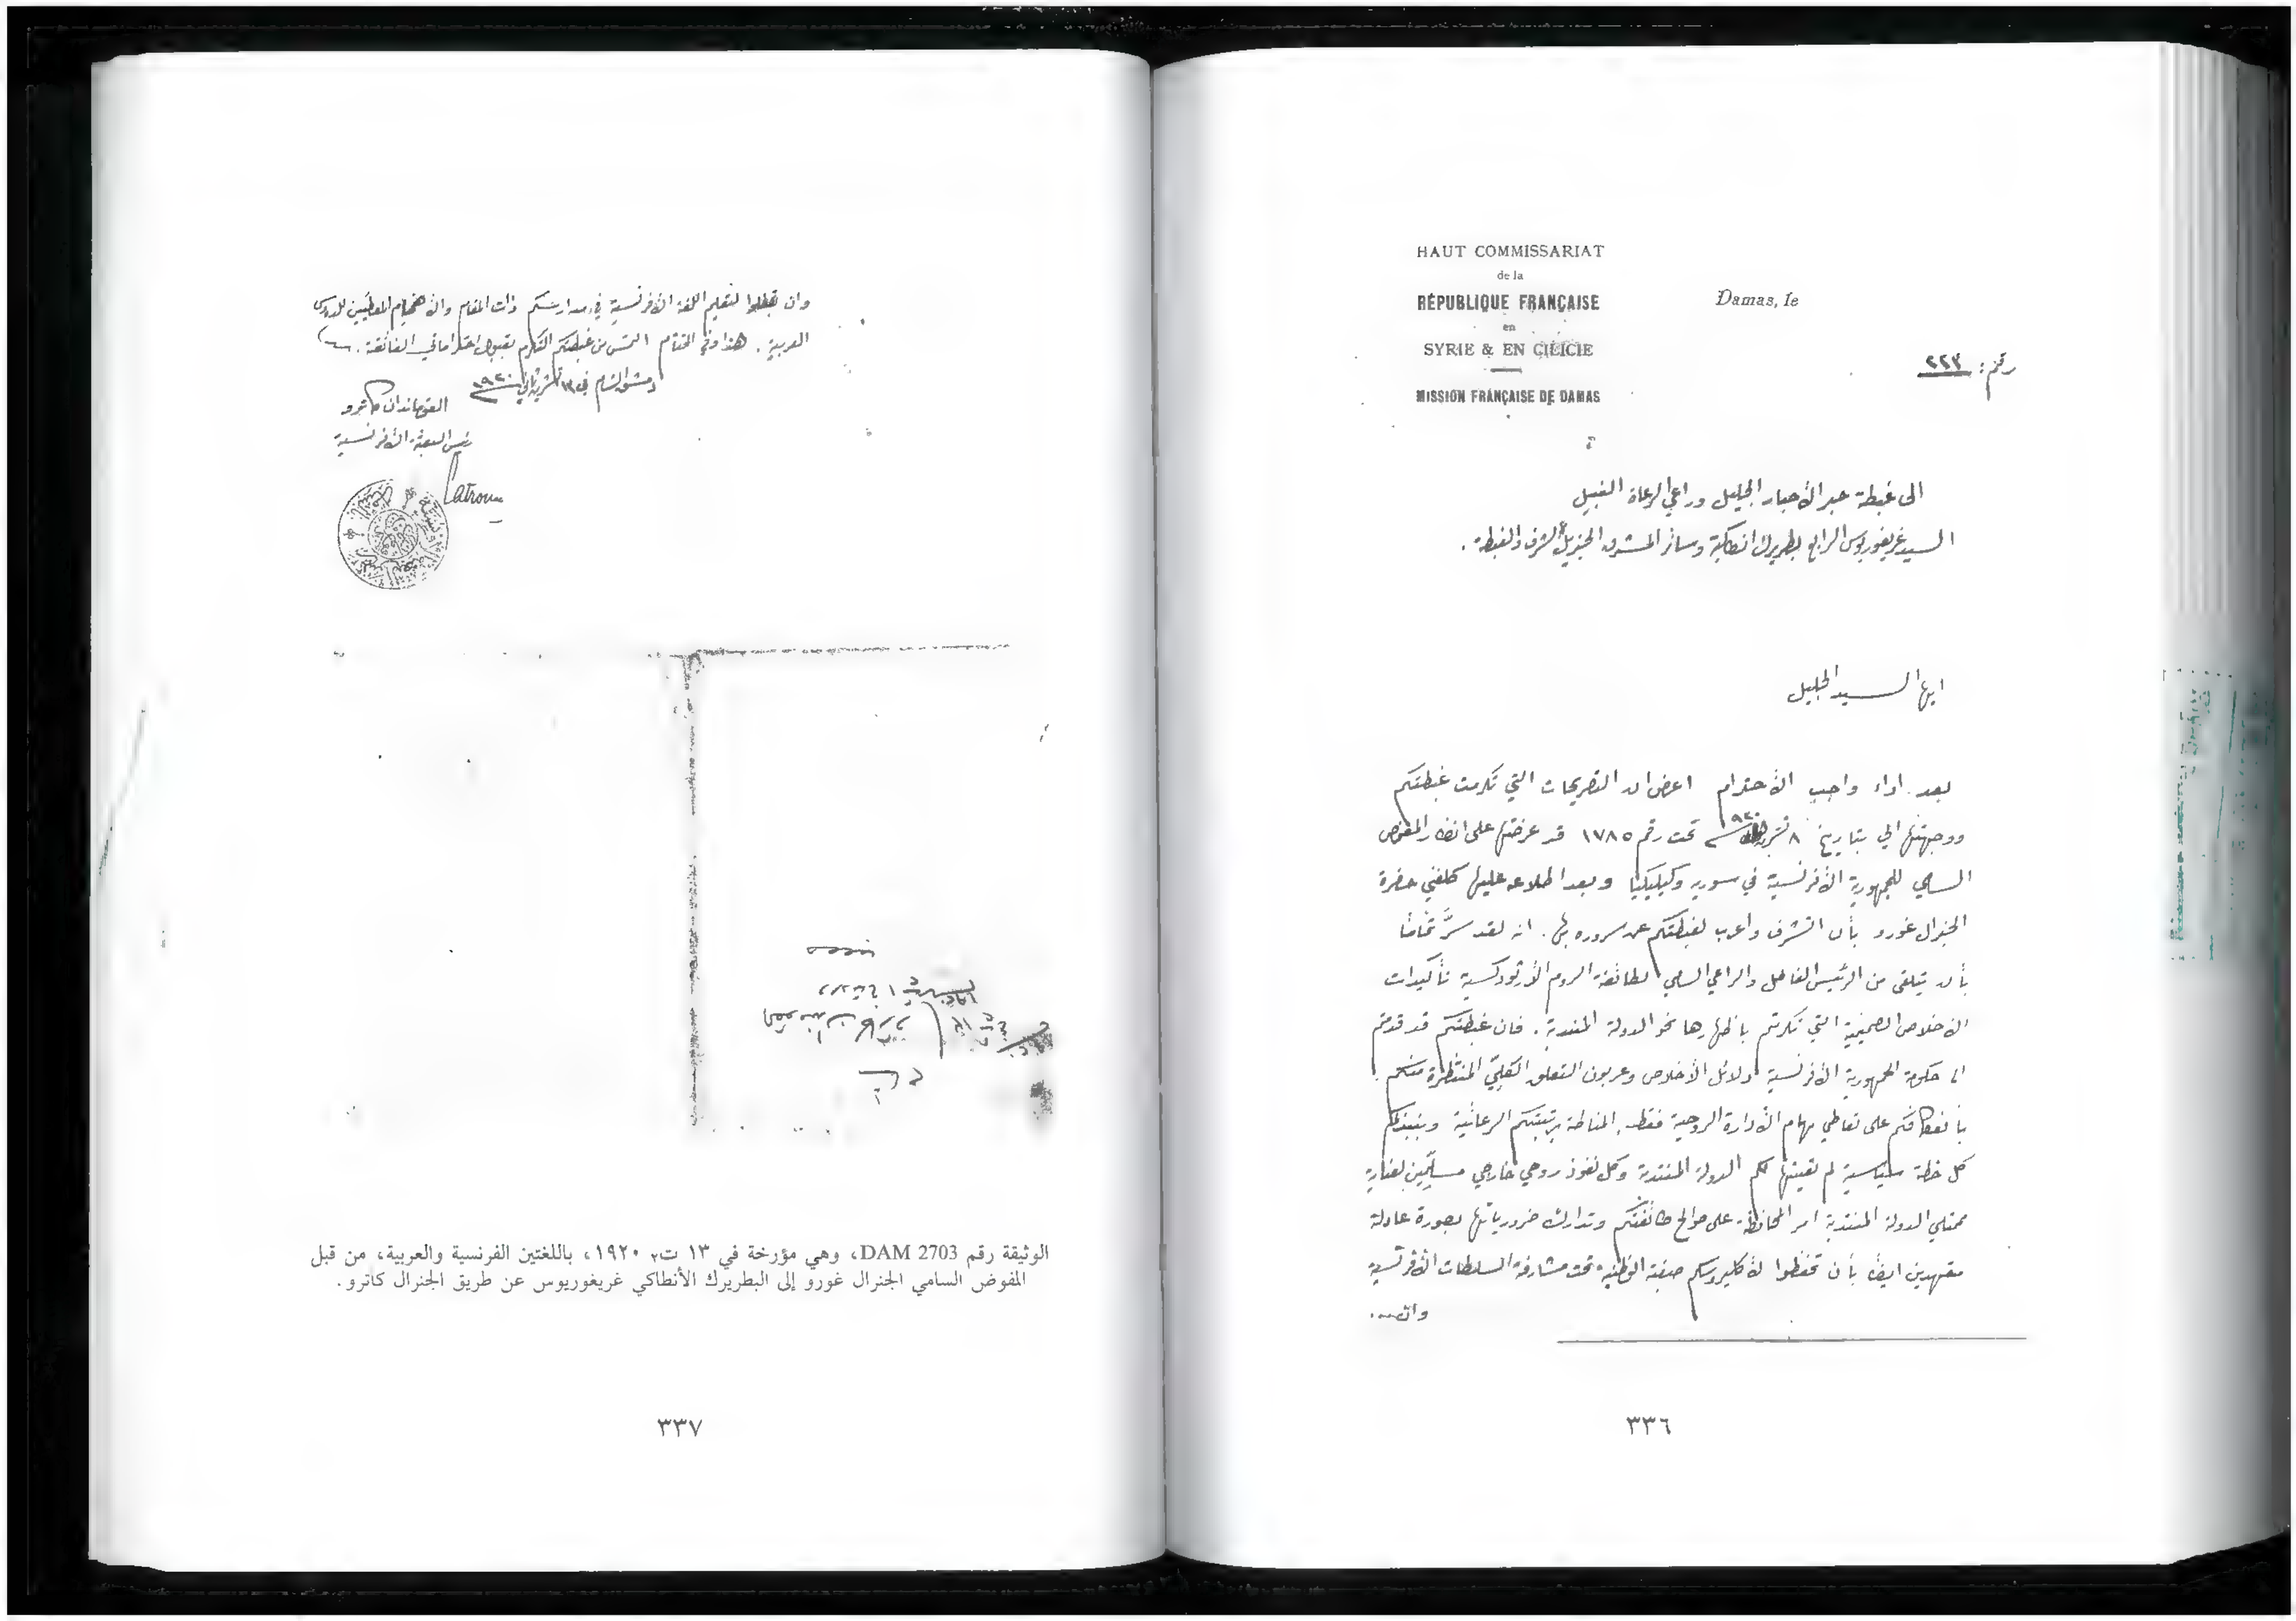 HAUT COMMISSARIAT
de la
RÉPUBLIQUE FRANÇAISE
en
SYRIE & EN CILICIE
MISSION FRANÇAISE DE DAMAS
Damas, le
رقم: ٢٢٣
الى غبطة حبر الأحبار الجليل وراعي الرعاة النبيل
السيد غريغوريوس الرابع بطريرك انطاكية وسائر المشرق الجزيل الشرف والغبطة.
ايها السيد الجليل
بعد اداء واجب الأحترام اعرض ان التصريحات التي تكرمت غبطتكم
ووجهتها الي بتاريخ ٨ تحت رقم ١٧٨٥ قد عرضتها على انظار المفوض
السامي للجمهورية الأفرنسية في سوريه وكيليكيا وبعد اطلاعه عليها كلفني حضرة
الجنرال غورو بأن اتشرف واعرب لغبطتكم عن سروره بها. انه لقد سرَّ تمامًا
بأن يتلقى من الرئيس الفاضل والراعي السامي لطائفة الروم الأرثوذكسية تأكيدات
الاخلاص الصميمية التي تكرمتم باظهارها نحو الدولة المنتدبة. فان غبطتكم قد قدمتم
الى حكومة الجمهورية الافرنسية دلائل الأخلاص وعربون التعلق القلبي المنتظرة منكم.
بأنعكافكم على تعاطي مهام الأدارة الروحية فقط المناطة برتبتكم الرعائية وبنبذكم
كل خطة سياسية لم تعينها لكم الدولة المنتدبة وكل نفوذ روحي خارجي مسلّمين لعناية
ممثلي الدولة المنتدبة امر المحافظة على صوالح طائفتكم وتدارك ضرورياتها بصورة عادلة
متعهدين ايضًا بأن تحفظوا لأكليروسكم صبغته الوطنية تحت مشارفة السلطات الأفرنسية
وان
٣٣٦
وان تجعلوا لتعليم اللغة الأفرنسية في مدارسكم ذات المقام والأهتمام المعطيين للدروس
العربية. هذا وفي الختام التمس من غبطتكم التكرم بقبول احتراماتي الفائقة.
دمشق الشام في ١٣ تشرين ثاني ١٩٢٠
القومندان كاترو
رئيس البعثة الأفرنسية
Catroux
الوثيقة رقم DAM 2703، وهي مؤرخة في ١٣ ت٢ ١٩٢٠، باللغتين الفرنسية والعربية، من قبل
المفوض السامي الجنرال غورو إلى البطريرك الأنطاكي غريغوريوس عن طريق الجنرال كاترو.
٣٣٧